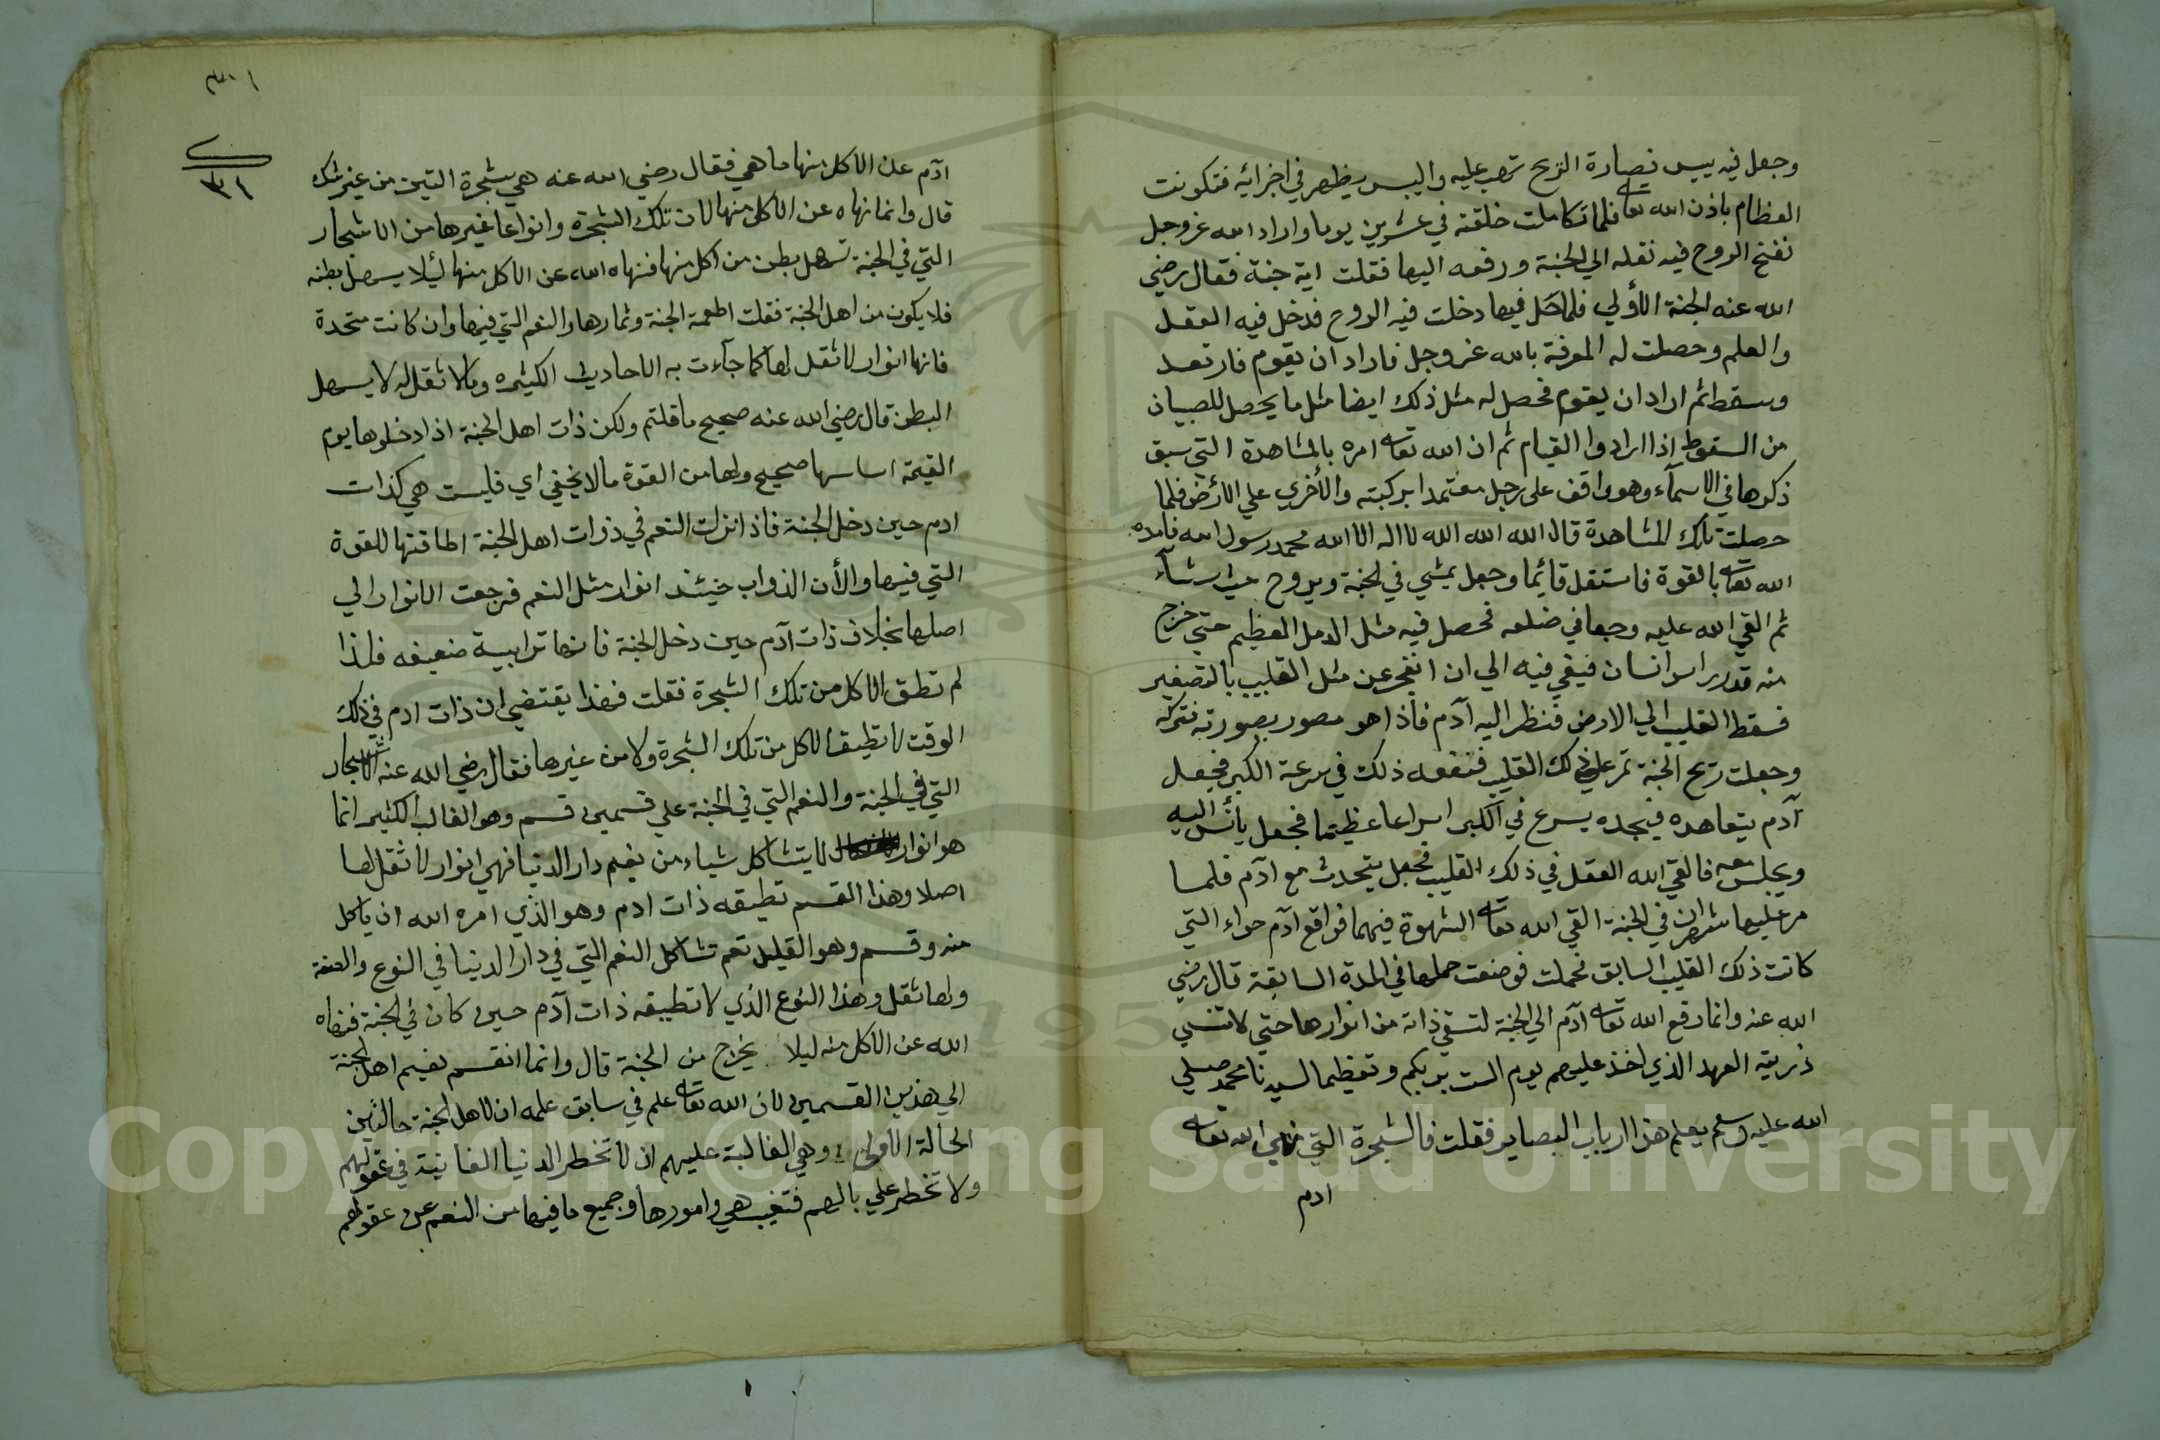 وجعل فيه ييبس فصارة الريح تهب عليه واليبس يظهر في اجزائه فتكونت
العظام باذن الله تعا فلما تكاملت خلقته في عشرين يوما واراد الله عز وجل
نفخ الروح فيه نقله الي الجنة ورفعه اليها فقلت اية جنة فقال رضي
الله عنه الجنة الأولي فلما حل فيها دخلت فيه الروح فدخل فيه العقل
والعلم وحصلت له المعرفة بالله عز وجل فاراد ان يقوم فارتعد
وسقط ثم اراد ان يقوم فحصل له مثل ذلك ايضا مثل ما يحصل للصبيان
من السقوط اذا ارادوا القيام ثم ان الله تعا امره بالمشاهدة التي سبق
ذكرها في الاسمآء وهو واقف على رجل معتمدا بركبته والأخري علي الارض فلما
حصلت تلك المشاهدة قال الله الله الله لا اله الا الله محمد رسول الله فامده
الله تعا بالقوة فاستقل قائما وجعل يمشي في الجنة ويروح حيث شآء
ثم القي الله عليه وجعا في ضلعه فحصل فيه مثل الدمل العظيم حتي خرج
منه قدر راس انسان فبقي فيه الي ان انفجر عن مثل القليب بالتصغير
فسقط القليب الي الارض فنظر اليه آدم فاذا هو مصور بصورته فتركه
وجعلت ريح الجنة تمر علي ذلك القليب فنفعه ذلك في سرعة الكبر فجعل
آدم يتعاهده فيجده يسرع في الكبر اسراعا عظيما فجعل يأنس اليه
ويجلس معه فالقي الله العقل في ذلك القليب فجعل يتحدث مع آدم فلما
مر عليها شهران في الجنة القي الله تعا الشهوة فيهما فواقع آدم حواء التي
كانت ذلك القليب السابق فحملت فوضعت حملها في المدة السابقة قال رضي
الله عنه وانما رفع الله تعا آدم الي الجنة لتسقي ذاته من انوارها حتي لا تنسي
ذريته العهد الذي اخذ عليهم يوم الست بربكم وتعظيما لسيدنا محمد صلي
الله عليه وسلم يعلم هذا ارباب البصاير فقلت فالشجرة التي نهي الله تعا
ادم
٣١
آدم عن الاكل منها ما هي فقال رضي الله عنه هي شجرة التين من غير شك
قال وانما نهاه عن الاكل منها لان تلك الشجرة وانواعا غيرها من الاشجار
التي في الجنة تسهل بطن من اكل منها فنهاه الله عن الاكل منها ليئلا يسهل بطنه
فلا يكون من اهل الجنة فقلت اطعمة الجنة وثمارها والنعم التي فيها وان كانت متحدة
فانها انوار لا ثقل لها كما جآءت به الاحاديث الكثيره وما لا ثقل له لا يسهل
البطن قال رضي الله عنه صحيح ما قلتم ولكن ذات اهل الجنة اذا دخلوها يوم
القيمة اساسها صحيح ولها من القوة ما لا يخفي اي فليست هي كذات
ادم حين دخل الجنة فاذا نزلت النعم في ذوات اهل الجنة اطاقتها للقوة
التي فيها والأن الذواب حينئذ انوار مثل النعم فرجعت الانوار الي
اصلها بخلاف ذات آدم حين دخل الجنة فانها ترابية ضعيفه فلذا
لم تطق الاكل من تلك الشجرة فقلت فهذا يقتضي ان ذات ادم في ذلك
الوقت لا تطيق الاكل من تلك الشجرة ولا من غيرها فقال رضي الله عنه الاشجار
التي في الجنة والنعم التي في الجنة علي قسمين قسم وهو الغالب الكثير انما
هو انوار لا يتشاكل شياء من نعيم دار الدنيا فهي انوار لا ثقل لها
اصلا وهذا القسم تطيقه ذات ادم وهو الذي امره الله ان ياكل
منه وقسم وهو القليل نعم تشاكل النعم التي في دار الدنيا في النوع والصفة
ولها ثقل وهذا النوع الذي لا تطيقه ذات آدم حين كان في الجنة فنهاه
الله عن الاكل منه ليلا يخرج من الجنة قال وانما انقسم نعيم اهل الجنة
الي هذين القسمين لان الله تعا علم في سابق علمه ان لاهل الجنة حالتين
الحالة الأولي وهي الغالبة عليهم ان لا تخطر الدنيا الفانية في عقولهم
ولا تخطر علي بالهم فتغيب هي وامورها وجميع ما فيها من النعم عن عقولهم
Copyright © King Saud University
195